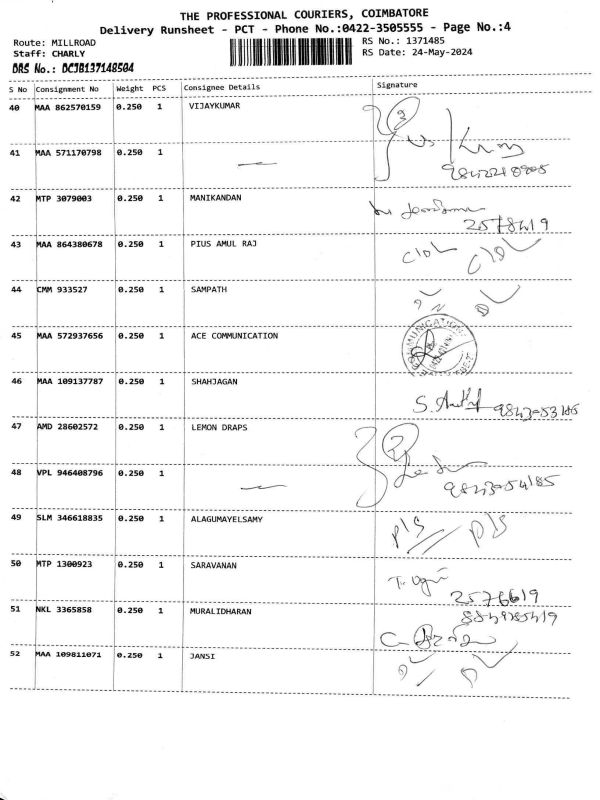 THE PROFESSIONAL COURIERS, COIMBATORE
Delivery Runsheet - PCT - Phone No.:0422-3505555 - Page No.:4
Route: MILLROAD
RS No.: 1371485
Staff: CHARLY
RS Date: 24-May-2024
DRS No.: DCJB137148504
S No Consignment No Weight PCS Consignee Details Signature
40 MAA 862570159 0.250 1 VIJAYKUMAR
41 MAA 571170798 0.250 1
42 MTP 3079003 0.250 1 MANIKANDAN
43 MAA 864380678 0.250 1 PIUS AMUL RAJ
44 CMM 933527 0.250 1 SAMPATH
45 MAA 572937656 0.250 1 ACE COMMUNICATION
46 MAA 109137787 0.250 1 SHAHJAGAN
47 AMD 28602572 0.250 1 LEMON DRAPS
48 VPL 946408796 0.250 1
49 SLM 346618835 0.250 1 ALAGUMAYELSAMY
50 MTP 1300923 0.250 1 SARAVANAN
2576619
51 NKL 3365858 0.250 1 MURALIDHARAN
52 MAA 109811071 0.250 1 JANSI